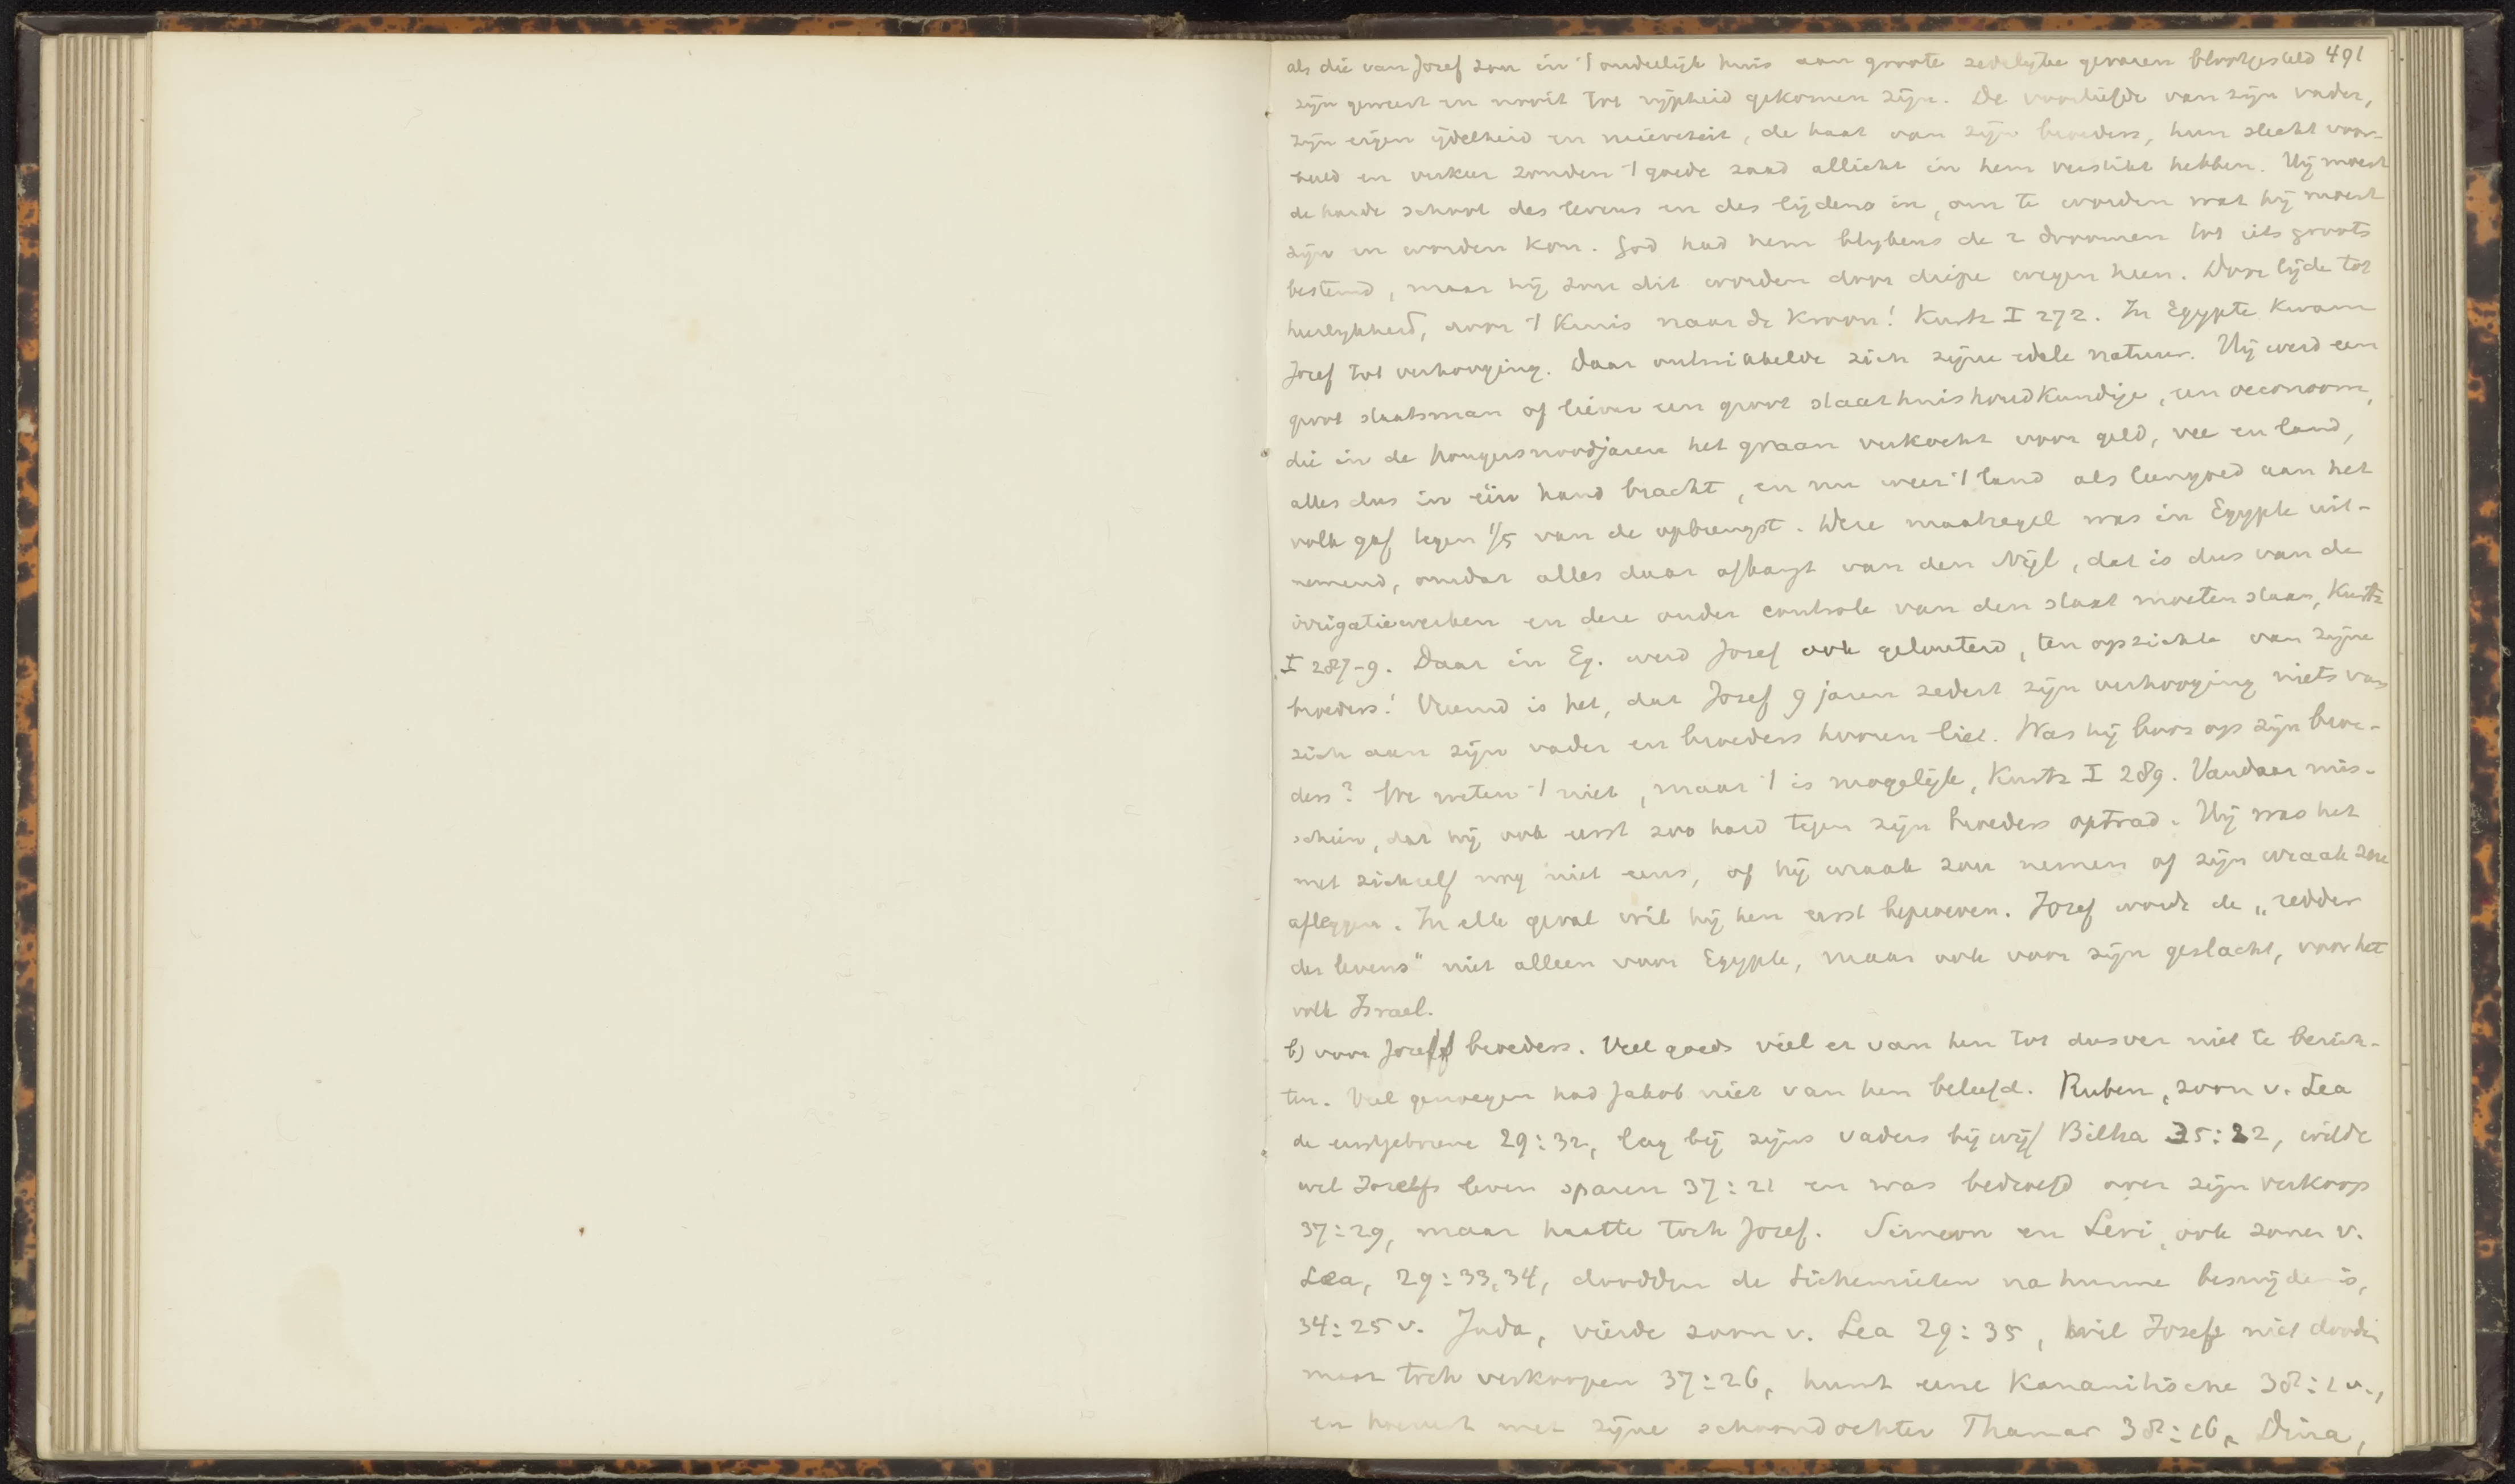 als die van Jozef zou in 't ouderlijk huis aan groote zedelyke gevaren blootgesteld 491
zijn geweest en nooit tot rijpheid gekomen zijn. De voorliefde van zijn vader,
zijn eigen ijdelheid en naieveteit, de haat van zijn broeders, hun slecht voor-
beeld en verkeer zouden 't goede zaad allicht in hem verstikt hebben. Hij moest
de harde school des levens en des lijdens in, om te worden wat hij moest
zijn en worden kon. God had hem blykens de 2 droomen tot iets groots
bestemd, maar hij zou dit worden door diepe wegen heen. Door lijde tot
heerlykheid, door 't Kruis naar de Kroon! Kurtz I 272. In Egypte kwam
Jozef tot verhooging. Daar ontwikkelde zich zijne edele natuur. Hij werd een
groot staatsman of liever een groot staathuishoudkundige, een oeconoom,
die in de hongersnoodjaren het graan verkocht voor geld, vee en land,
alles dus in één hand bracht, en nu weer 't land als leengoed aan het
volk gaf tegen 1/5 van de opbrengst. Deze maatregel was in Egypte uit-
nemend, omdat alles daar afhangt van den Nijl, dat is dus van de
irrigatiewerken en deze onder controle van den staat moeten staan, Kurtz
I 287-9. Daar in Eg. werd Jozef ook gelouterd, ten opzichte van zijne
broeders! Vreemd is het, dat Jozef 9 jaren zedert zijn verhooging niets van
zich aan zijn vader en broeders hooren liet. Was hij boos op zijn broe-
ders? We weten 't niet, maar 't is mogelijk, Kurtz I 289. Vandaar mis-
schien, dat hij ook eerst zoo hard tegen zijn broeders optrad. Hij was het
met zichzelf nog niet eens, of hij wraak zou nemen of zijn wraak zou
afleggen. In elk geval wil hij hen eerst beproeven. Jozef wordt de „redder
des levens" niet alleen voor Egypte, maar ook voor zijn geslacht, voor het
volk Israel.
b) voor Jozefs broeders. Veel goeds viel er van hen tot dusver niet te berich-
ten. Veel genoegen had Jakob niet van hen beleefd. Ruben, zoon v. Lea
de eerstgeborene 29:32, lag bij zijns vaders bijwijf Bilha 35:22, wilde
wel Jozefs leven sparen 37:21 en was bedroefd over zijn verkoop
37:29, maar haatte toch Jozef. Simeon en Levi, ook zonen v.
Lea, 29:33,34, doodden de Sichemieten na hunne besnijdenis,
34:25 v. Juda, vierde zoon v. Lea 29:35, wil Jozef niet dooden
maar toch verkoopen 37:26, huwt eene Kanaanitische 38:1 v.,
en hoereert met zijne schoondochter Thamar 38:16, Dina,